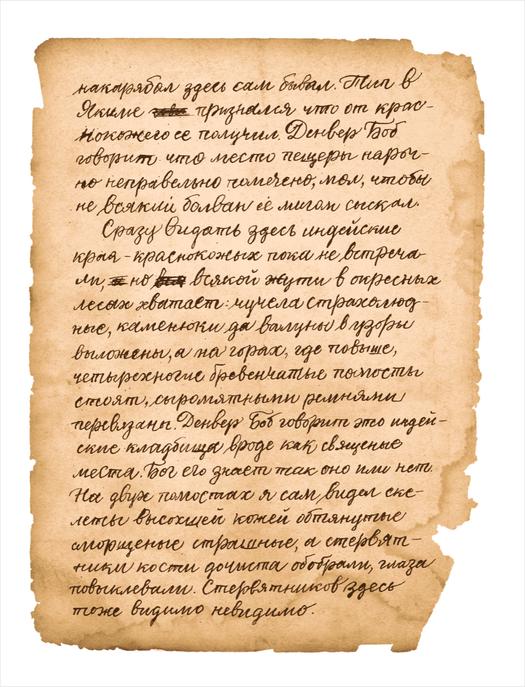 накарябал здесь сам бывал. Тип в
Якиме признался что от крас-
нокожего её получил. Денвер Боб
говорит что место пещеры нароч-
но неправельно помечено, мол, чтобы
не всякий болван её мигом сыскал.
Сразу видать здесь индейские
края - краснокожых пока не встреча
ли но всякой жути в окресных
лесах хватает: чучела страхолюд-
ные, каменюки да валуны в узоры
выложены, а на горах, где повыше,
четырехногие бревенчатые помосты
стоят, сыромятными ремнями
перевязаны. Денвер Боб говорит это индей-
ские кладбища вроде как священые
места. Бог его знает так оно или нет.
На двух помостах я сам видел ске-
леты высохшей кожей обтянутые
сморщеные страшные, а стервят-
ники кости дочиста обобрали, глаза
повыклевали. Стервятников здесь
тоже видимо невидимо.